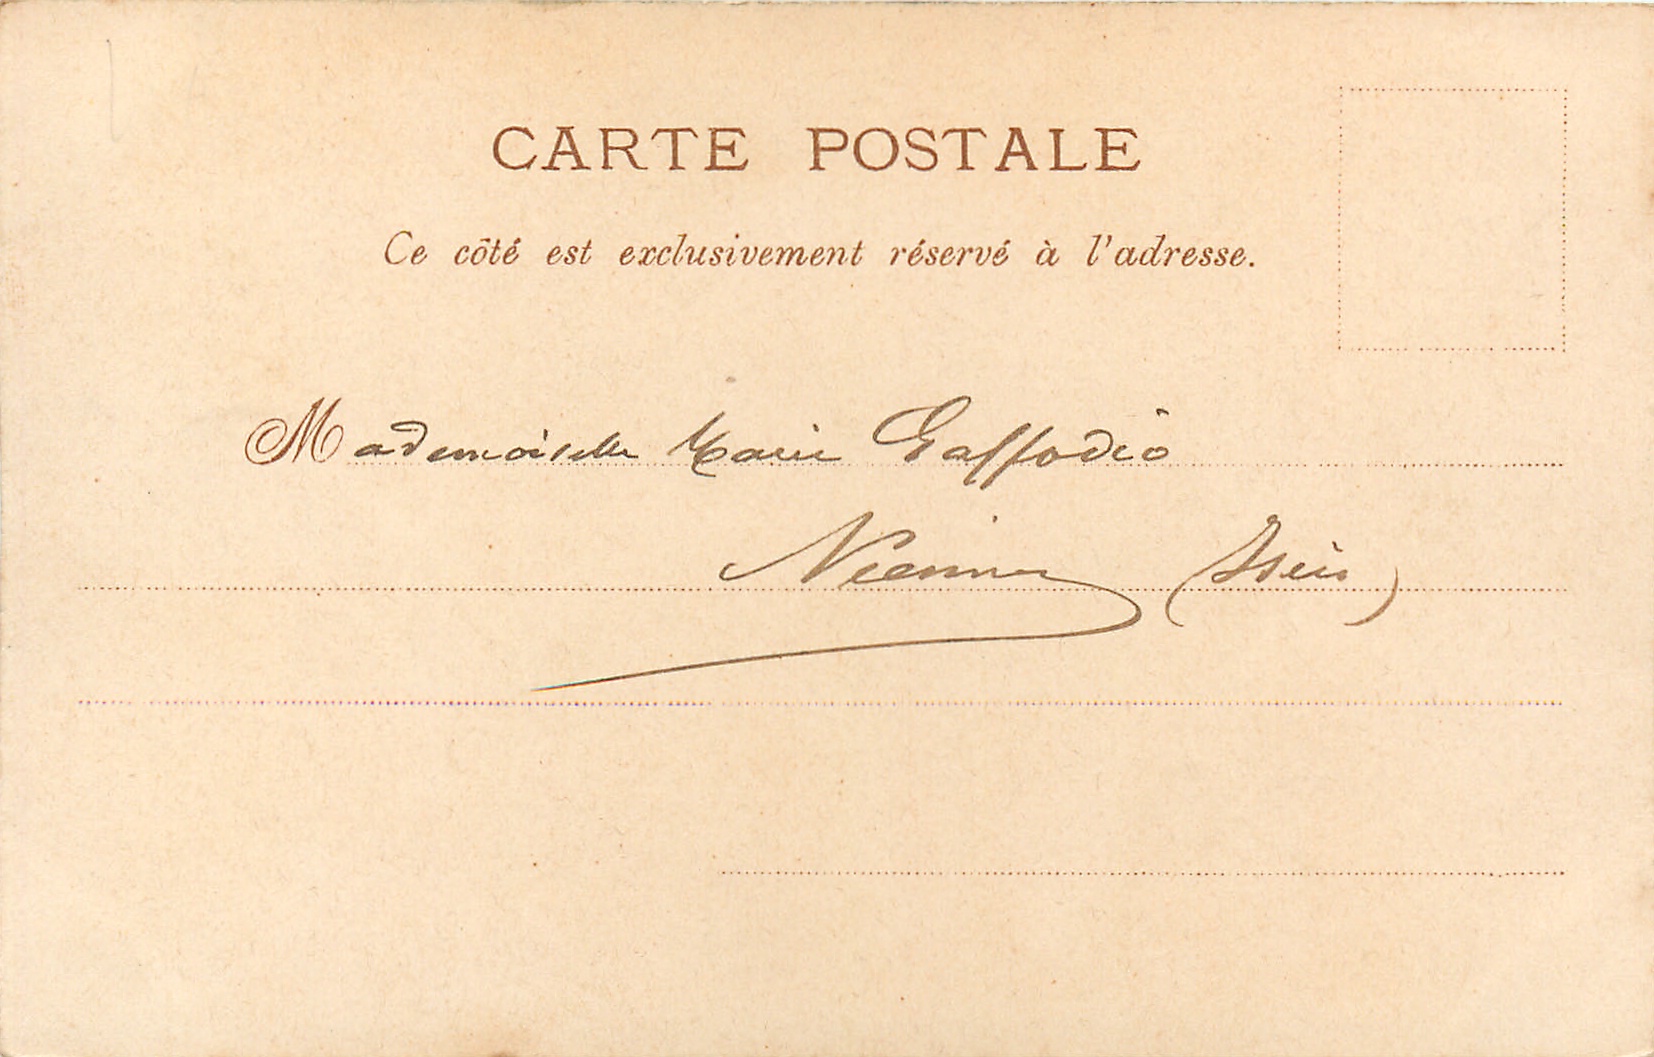 CARTE POSTALE
Ce côté est exclusivement réservé à l'adresse.
Mademoiselle Marie Gaffodio
Vienne (Isère)